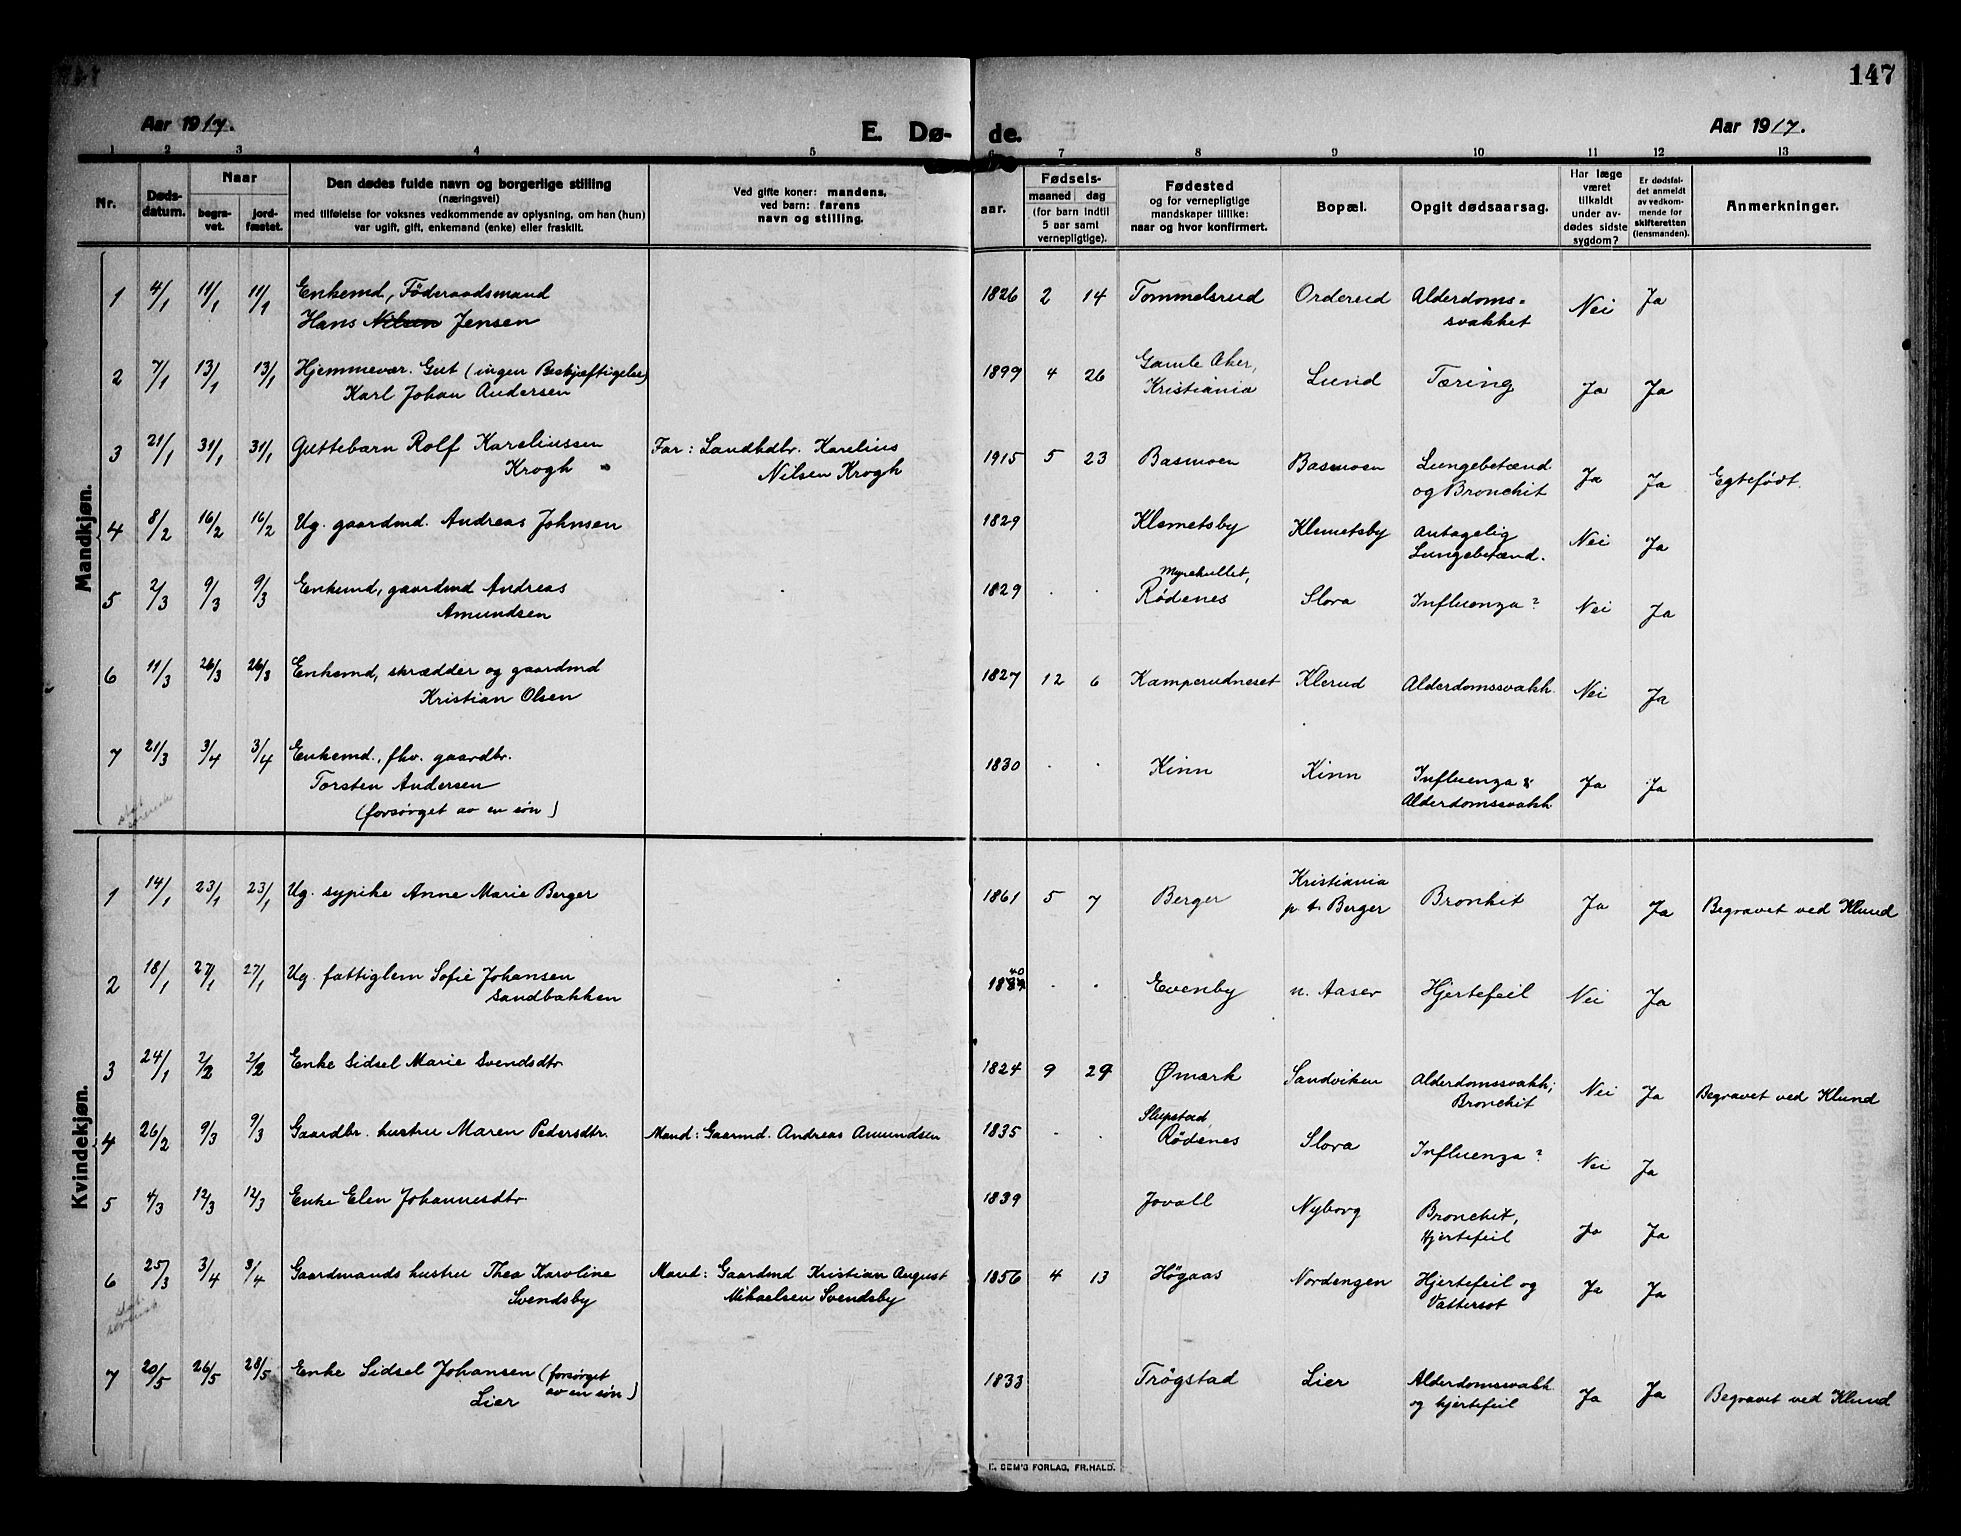 147
Aar 1917.
E. Dø-
de.
Aar 1917.
1 2 3 4 5 6 7 8 9 10 11 12 13
Nr.
Døds-
datum.
Naar
begra-
vet.
jord-
fæstet.
Den dødes fulde navn og borgerlige stilling
(næringsvei)
med tilføielse for voksnes vedkommende av oplysning, om han (hun)
var ugift, gift, enkemand (enke) eller fraskilt.
Ved gifte koner: mandens,
ved barn: farens
navn og stilling.
Fødsels-
aar.
maaned dag
(for barn indtil
5 aar samt
vernepligtige).
Fødested
og for vernepligtige
mandskaper tillike:
naar og hvor konfirmert.
Bopæl.
Opgit dødsaarsag.
Har læge
været
tilkaldt
under av-
dødes sidste
sygdom?
Er dødsfal-
det anmeldt
av vedkom-
mende for
skifteretten
(lensmanden).
Anmerkninger.
Mandkjøn.
1 4/1 11/1 11/1 Enkemd, Föderaadsmand
Hans Nilsen Jensen
1826 2 14 Tommelsrud Orderud Alderdoms-
svakhet Nei Ja
2 7/1 13/1 13/1 Hjemmevær. Gut (ingen Beskjæftigelse)
Karl Johan Andersen
1899 4 26 Gamle Aker,
Kristiania Lund Tæring Ja Ja
3 21/1 31/1 31/1 Guttebarn Rolf Kareliussen
Krogh
Far: Landhdtr. Karelius
Nilsen Krogh
1915 5 23 Basmoen Basmoen Lungebetænd
og Bronchit Ja Ja Egtefödt.
4 8/2 16/2 16/2 Ug. gaardmd. Andreas Johnsen
1829 Klemetsby Klemetsby Antagelig
Lungebetænd. Nei Ja
5 2/3 9/3 9/3 Enkemd, gaardmd Andreas
Amundsen
1829 . . Myrekullet,
Rødenes Slora Influenza? Nei Ja
6 11/3 26/3 26/3 Enkemd, skrædder og gaardmd
Kristian Olsen
1827 12 6 Kamperudneset Klerud Alderdomssvakh. Nei Ja
7 21/3 3/4 3/4 Enkemd., fhv. gaardbr.
Torsten Andersen
(forsørget av en søn)
1830 . . Kinn Kinn Influenza &
Alderdomssvakh Ja Ja
Kvindekjøn.
1 14/1 23/1 23/1 Ug. sypike Anne Marie Berger
1861 5 7 Berger Kristiania
p. t. Berger Bronkit Ja Ja Begravet ved Klund
2 18/1 27/1 27/1 Ug. fattiglem Sofie Johansen
Sandbakken
40
1834 . . Evenby n. Aaser Hjertefeil Nei Ja
3 24/1 2/2 2/2 Enke Sidsel Marie Svendsdtr
1824 9 29 Ømark Sandviken Alderdomssvakh;
Bronchit Nei Ja Begravet ved Klund
4 26/2 9/3 9/3 Gaardbr. hustru Maren Pedersdtr.
Mand: Gaarmd. Andreas Amundsen
1835 . . Slupstad,
Rödenes Slora Influenza? Nei Ja
5 4/3 12/3 12/3 Enke Elen Johannesdtr.
1839 Jovall Nyborg Bronchit,
Hjertefeil Ja Ja
6 25/3 3/4 3/4 Gaardmands hustru Thea Karoline
Svendsby
Mand: Gaardmd Kristian August
Mikaelsen Svendsby
1856 4 13 Högaas Nordengen Hjertefeil og
Vattersot Ja Ja
7 20/5 26/5 28/5 Enke Sidsel Johansen (forsørget
av en søn)
Lier
1833 Trögstad Lier Alderdomssvakh
og hjertefeil Ja Ja Begravet ved Klund
E. SEM'S FORLAG, FR.HALD.